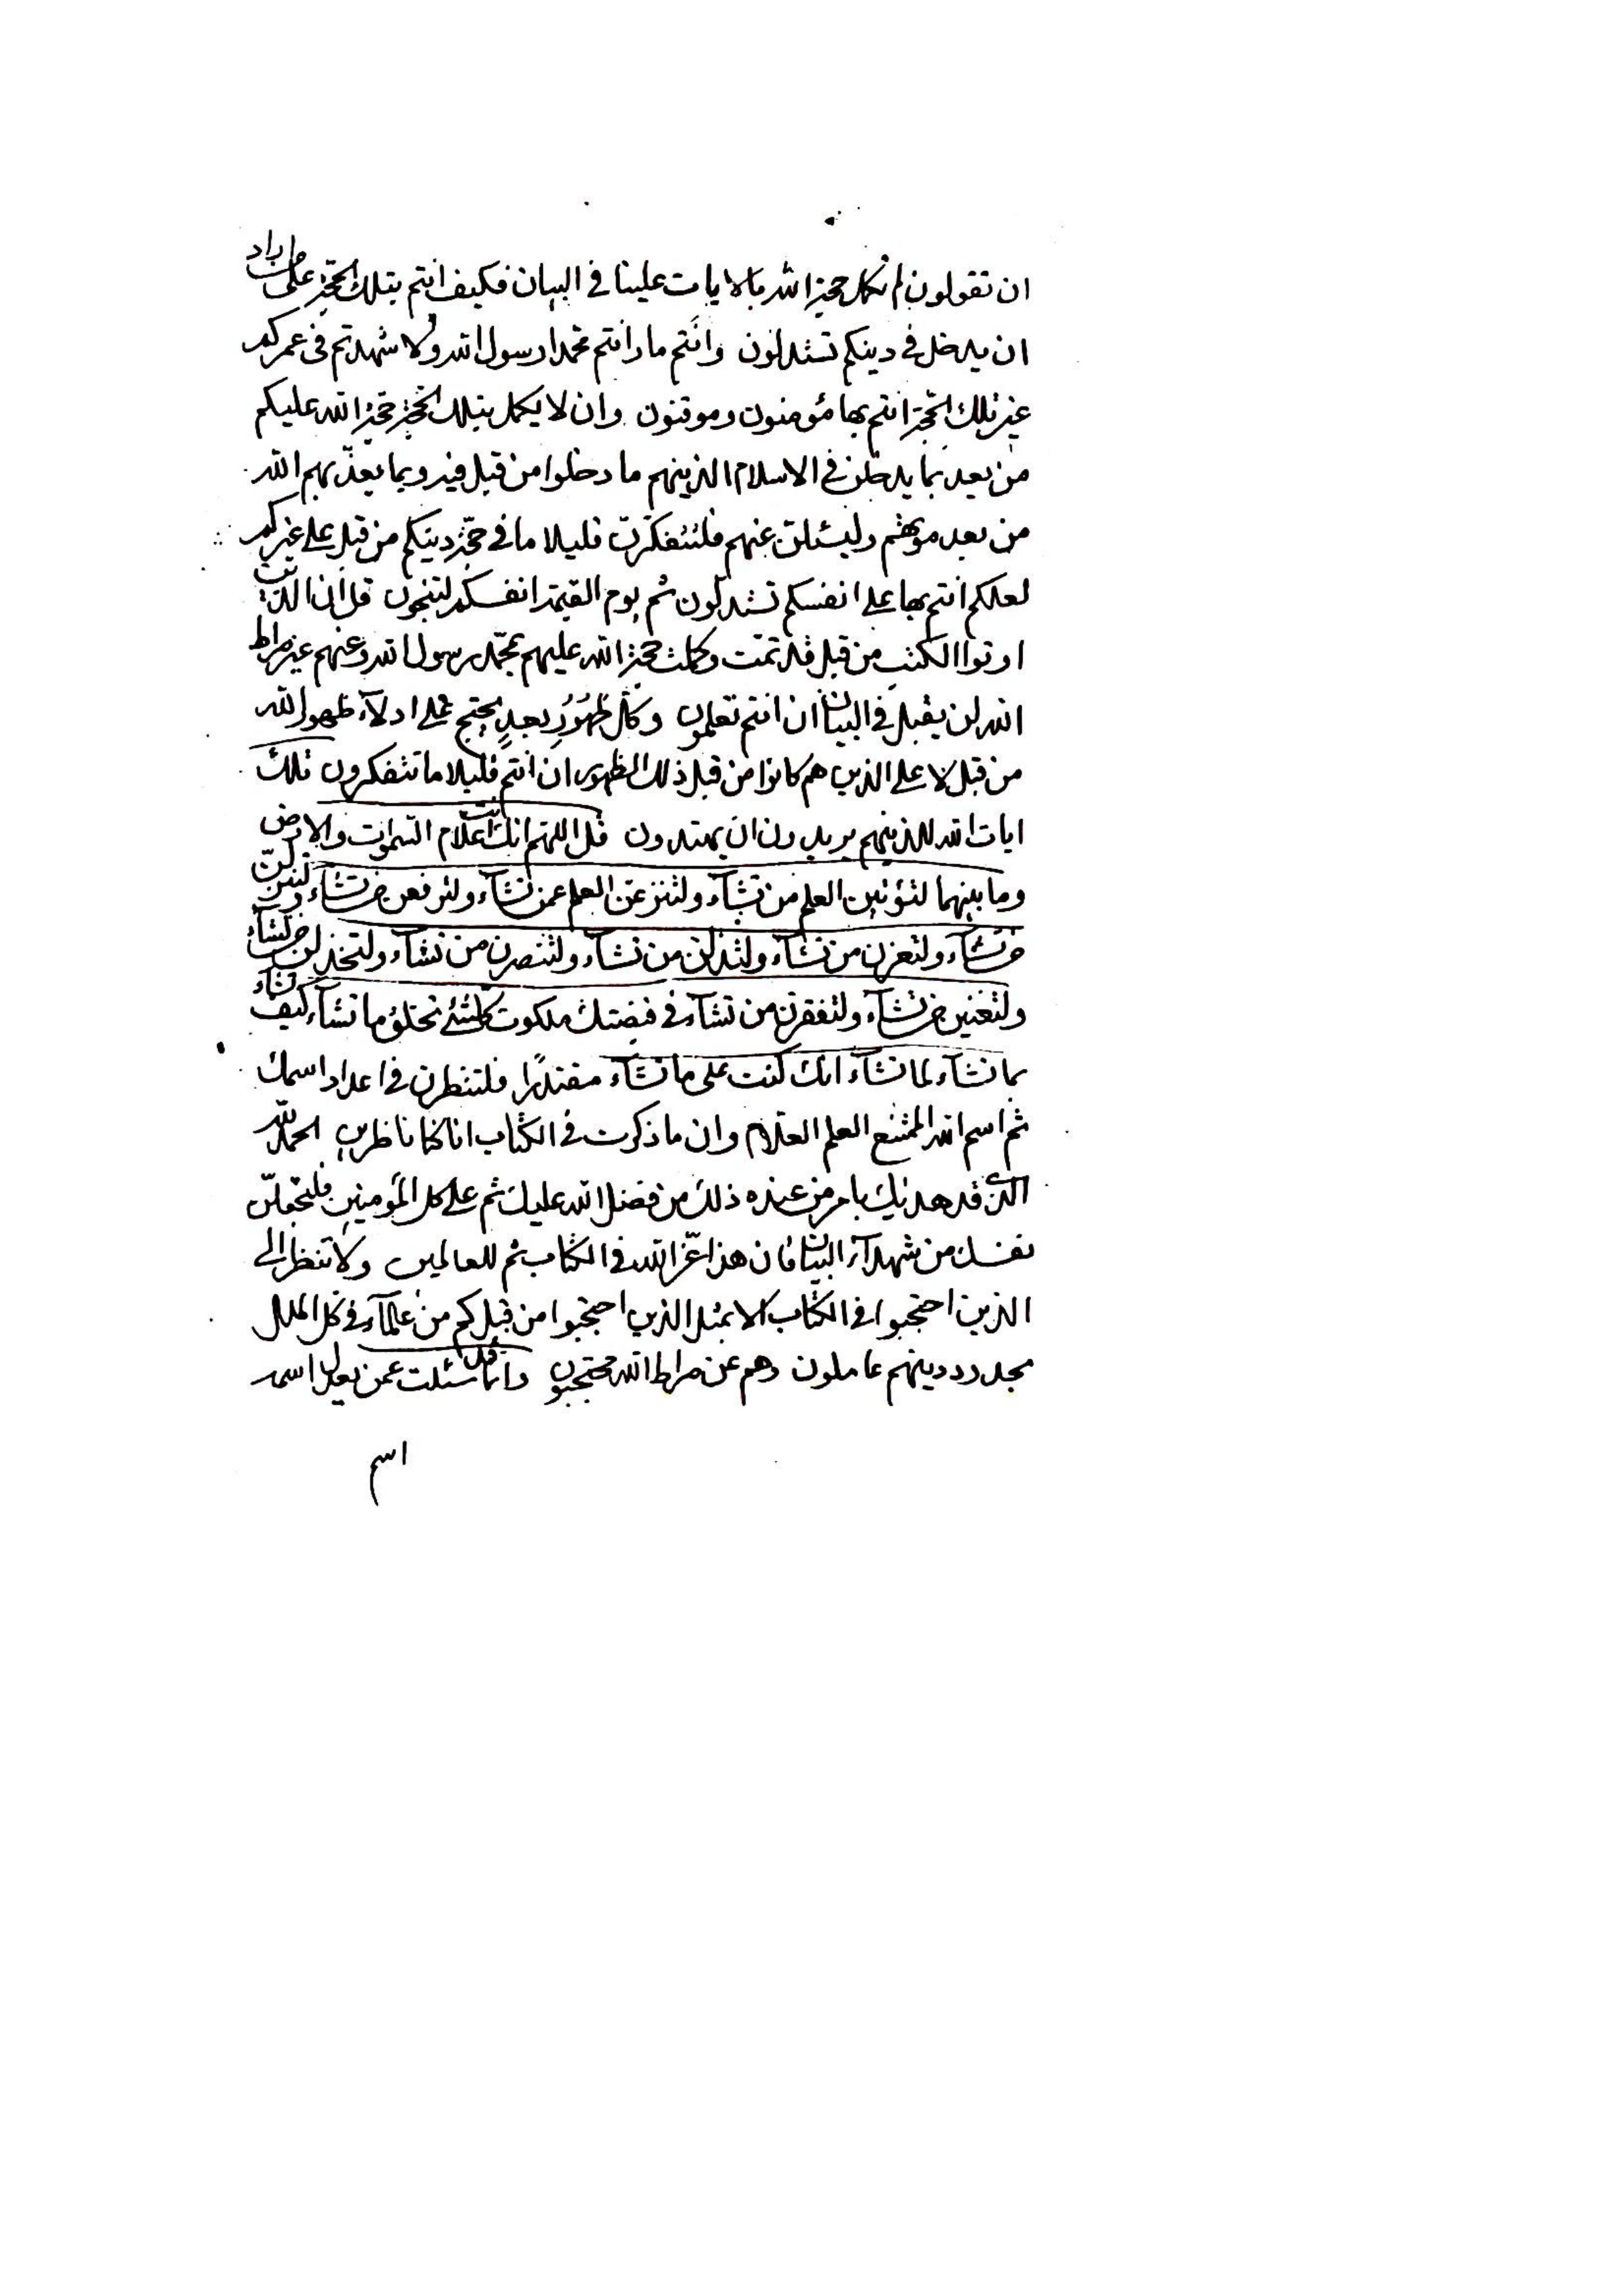 ان تقولون لم تكمل حجة الله بالايات علينا في البيان فكيف انتم بتلك الحجة على من اراد
ان يدخل في دينكم تستدلون وانتم ما رانتم محمدا رسول الله ولا شهدتم في عمركم
غير تلك الحجة انتم بها مؤمنون وموقنون وان لا يكمل بتلك الحجة حجة الله عليكم
من بعد بما يدخلن في الاسلام الذينهم ما دخلوا من قبل فيه وبما يعذبهم الله
من بعد موتهم وليسئلن عنهم فلتتفكرن قليلا ما في حجة دينكم من قبل على غيركم
لعلكم انتم بها على انفسكم تستدلون ثم يوم القيمة انفسكم لتنجون قل ان الذين
اوتوا الكتب من قبل قد تمت وكملت حجة الله عليهم بمحمد رسول الله وعنهم غير صراط
الله لن يقبل في البيان ان انتم تعلمون وكل ظهور بعد يحتج على ادلاء ظهور الله
من قبل لا على الذين هم كانوا من قبل ذلك الظهور ان انتم قليلا ما تتفكرون تلك
ايات الله للذينهم يريدون ان يهتدون قل اللهم انك انت علام السموات والارض
وما بينهما لتؤتين العلم من تشآء ولتنزعن العلم عمن تشآء ولترفعن من تشآء ولتنزلن
من تشآء ولتعزن من تشآء ولتذلن من تشآء ولتنصرن من تشآء ولتخذلن من تشآء
ولتغنين من تشآء ولتفقرن من تشآء في قبضتك ملكوت كلشئ تخلق ما تشآء كيف تشآء
بما تشآء لما تشآء انك كنت على ما تشآء مقتدرا فلتنظرن في اعداد اسمك
ثم اسم الله الممتنع العلم العلام وان ما ذكرت في الكتاب انا كنا ناظرين الحمد لله
الذي قد هديك بامر من عنده ذلك من فضل الله عليك ثم على كل المؤمنين فلتجعلن
نفسك من شهدآء البيان فان هذا عز الله في الكتاب ثم للعالمين ولا تنظر الى
الذين احتجبوا في الكتاب الا بمثل الذين احتجبوا من قبلكم من علمآء في كل الملل
بحدود دينهم عاملون وهم عن صراط الله محتجبون وانما قد سئلت عمن يعدل اسمه
اسم